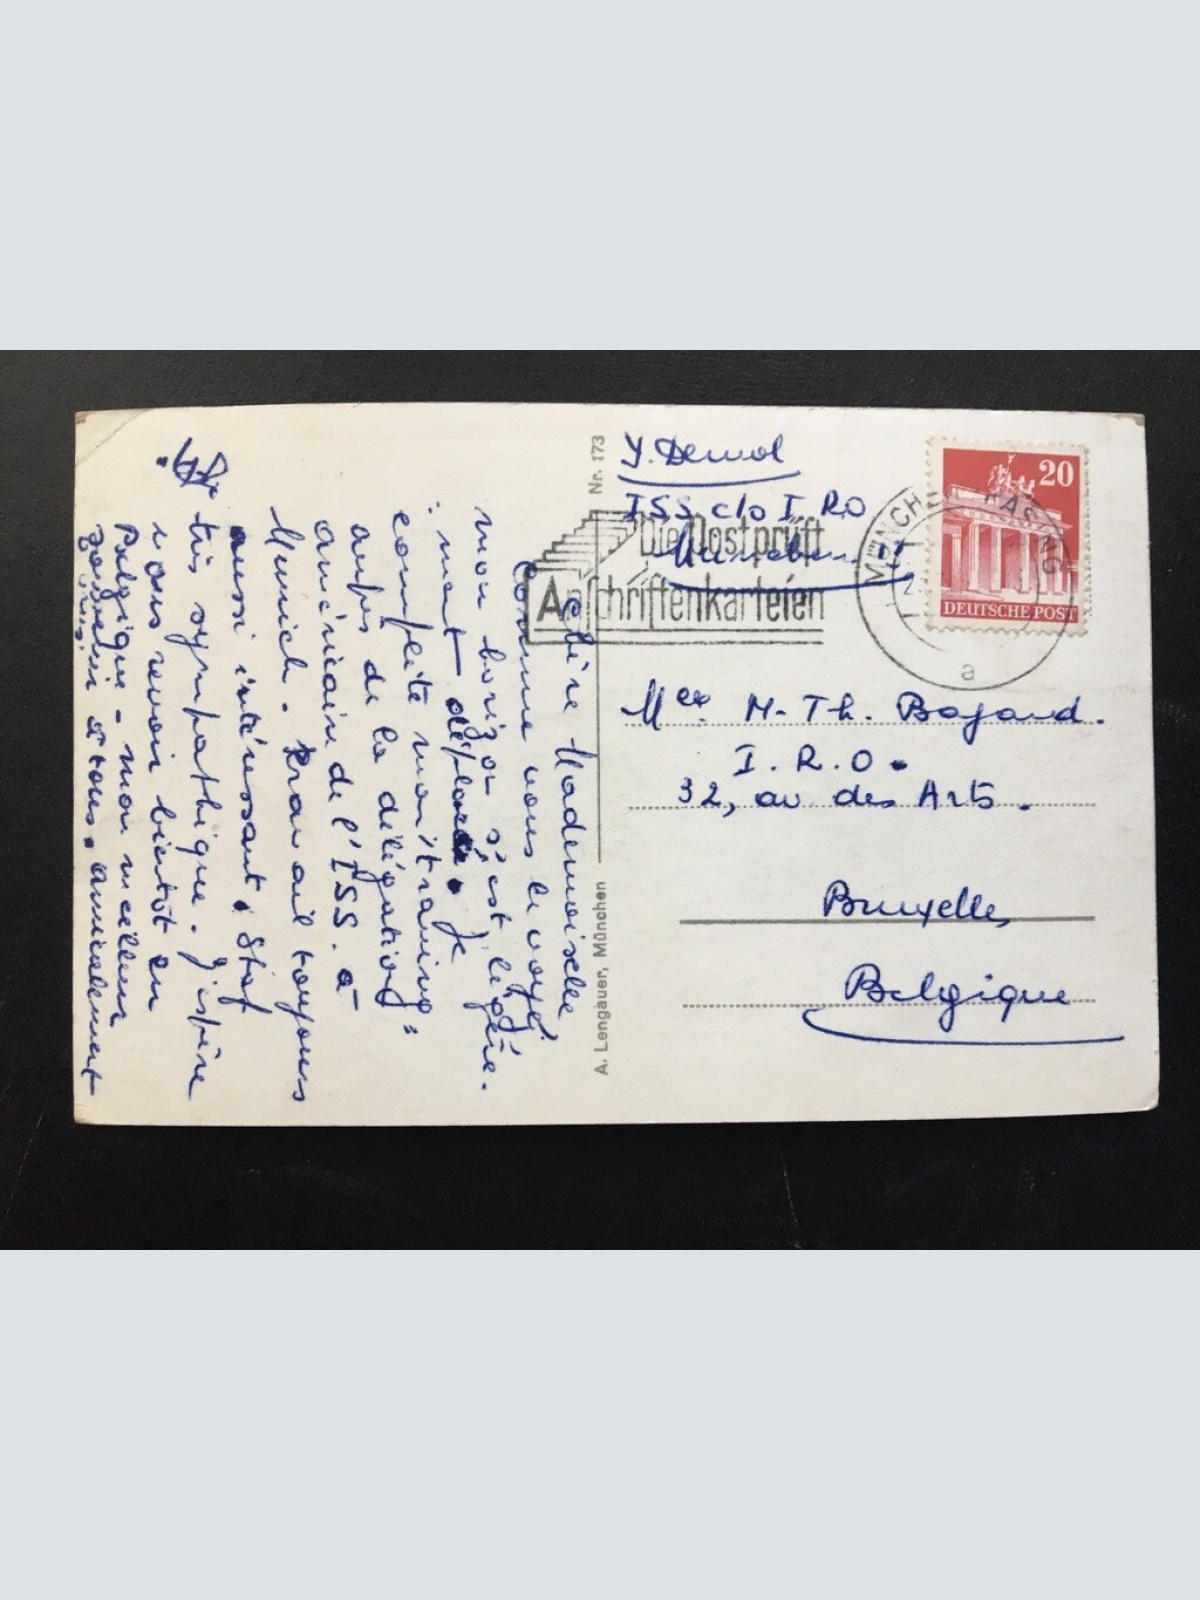 Chère Mademoiselle
Comme vous le voyez
mon horizon s'est légère:
:ment déplacé. Je
complète mon training
auprès de la délégation
américaine de l'ISS. à
Munich. Travail toujours
aussi intéressant. Staf
très sympathique. J'espère
vous revoir bientôt en
Belgique - mon meilleur
souvenir à tous. amicalement
A. Lengauer, München
Nr. 173
Y. Demol
ISS c/o I.RO
München
Die Post prüft
Anschriftenkarteien
MÜNCHEN-PASING
a
20
DEUTSCHE POST
Melle. M-Th. Bojand.
I.R.O.
32, av des Arts.
Bruxelles
Belgique